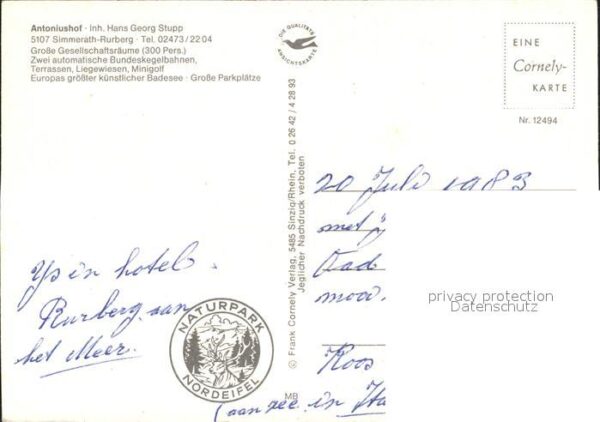 Antoniushof · Inh. Hans Georg Stupp
5107 Simmerath-Rurberg · Tel. 02473/2204
Große Gesellschaftsräume (300 Pers.)
Zwei automatische Bundeskegelbahnen,
Terrassen, Liegewiesen, Minigolf
Europas größter künstlicher Badesee · Große Parkplätze
DIE QUALITÄTS
ANSICHTSKARTE
EINE
Cornely-
KARTE
Nr. 12494
© Frank Cornely Verlag, 5485 Sinzig/Rhein, Tel. 0 26 42 / 4 28 93
Jeglicher Nachdruck verboten
20 Juli 1983
met
moo.
privacy protection
Datenschutz
Koos
in hotel.
Rurberg aan
het Meer.
NATURPARK
NORDEIFEL
MB
(aan zee in Ita